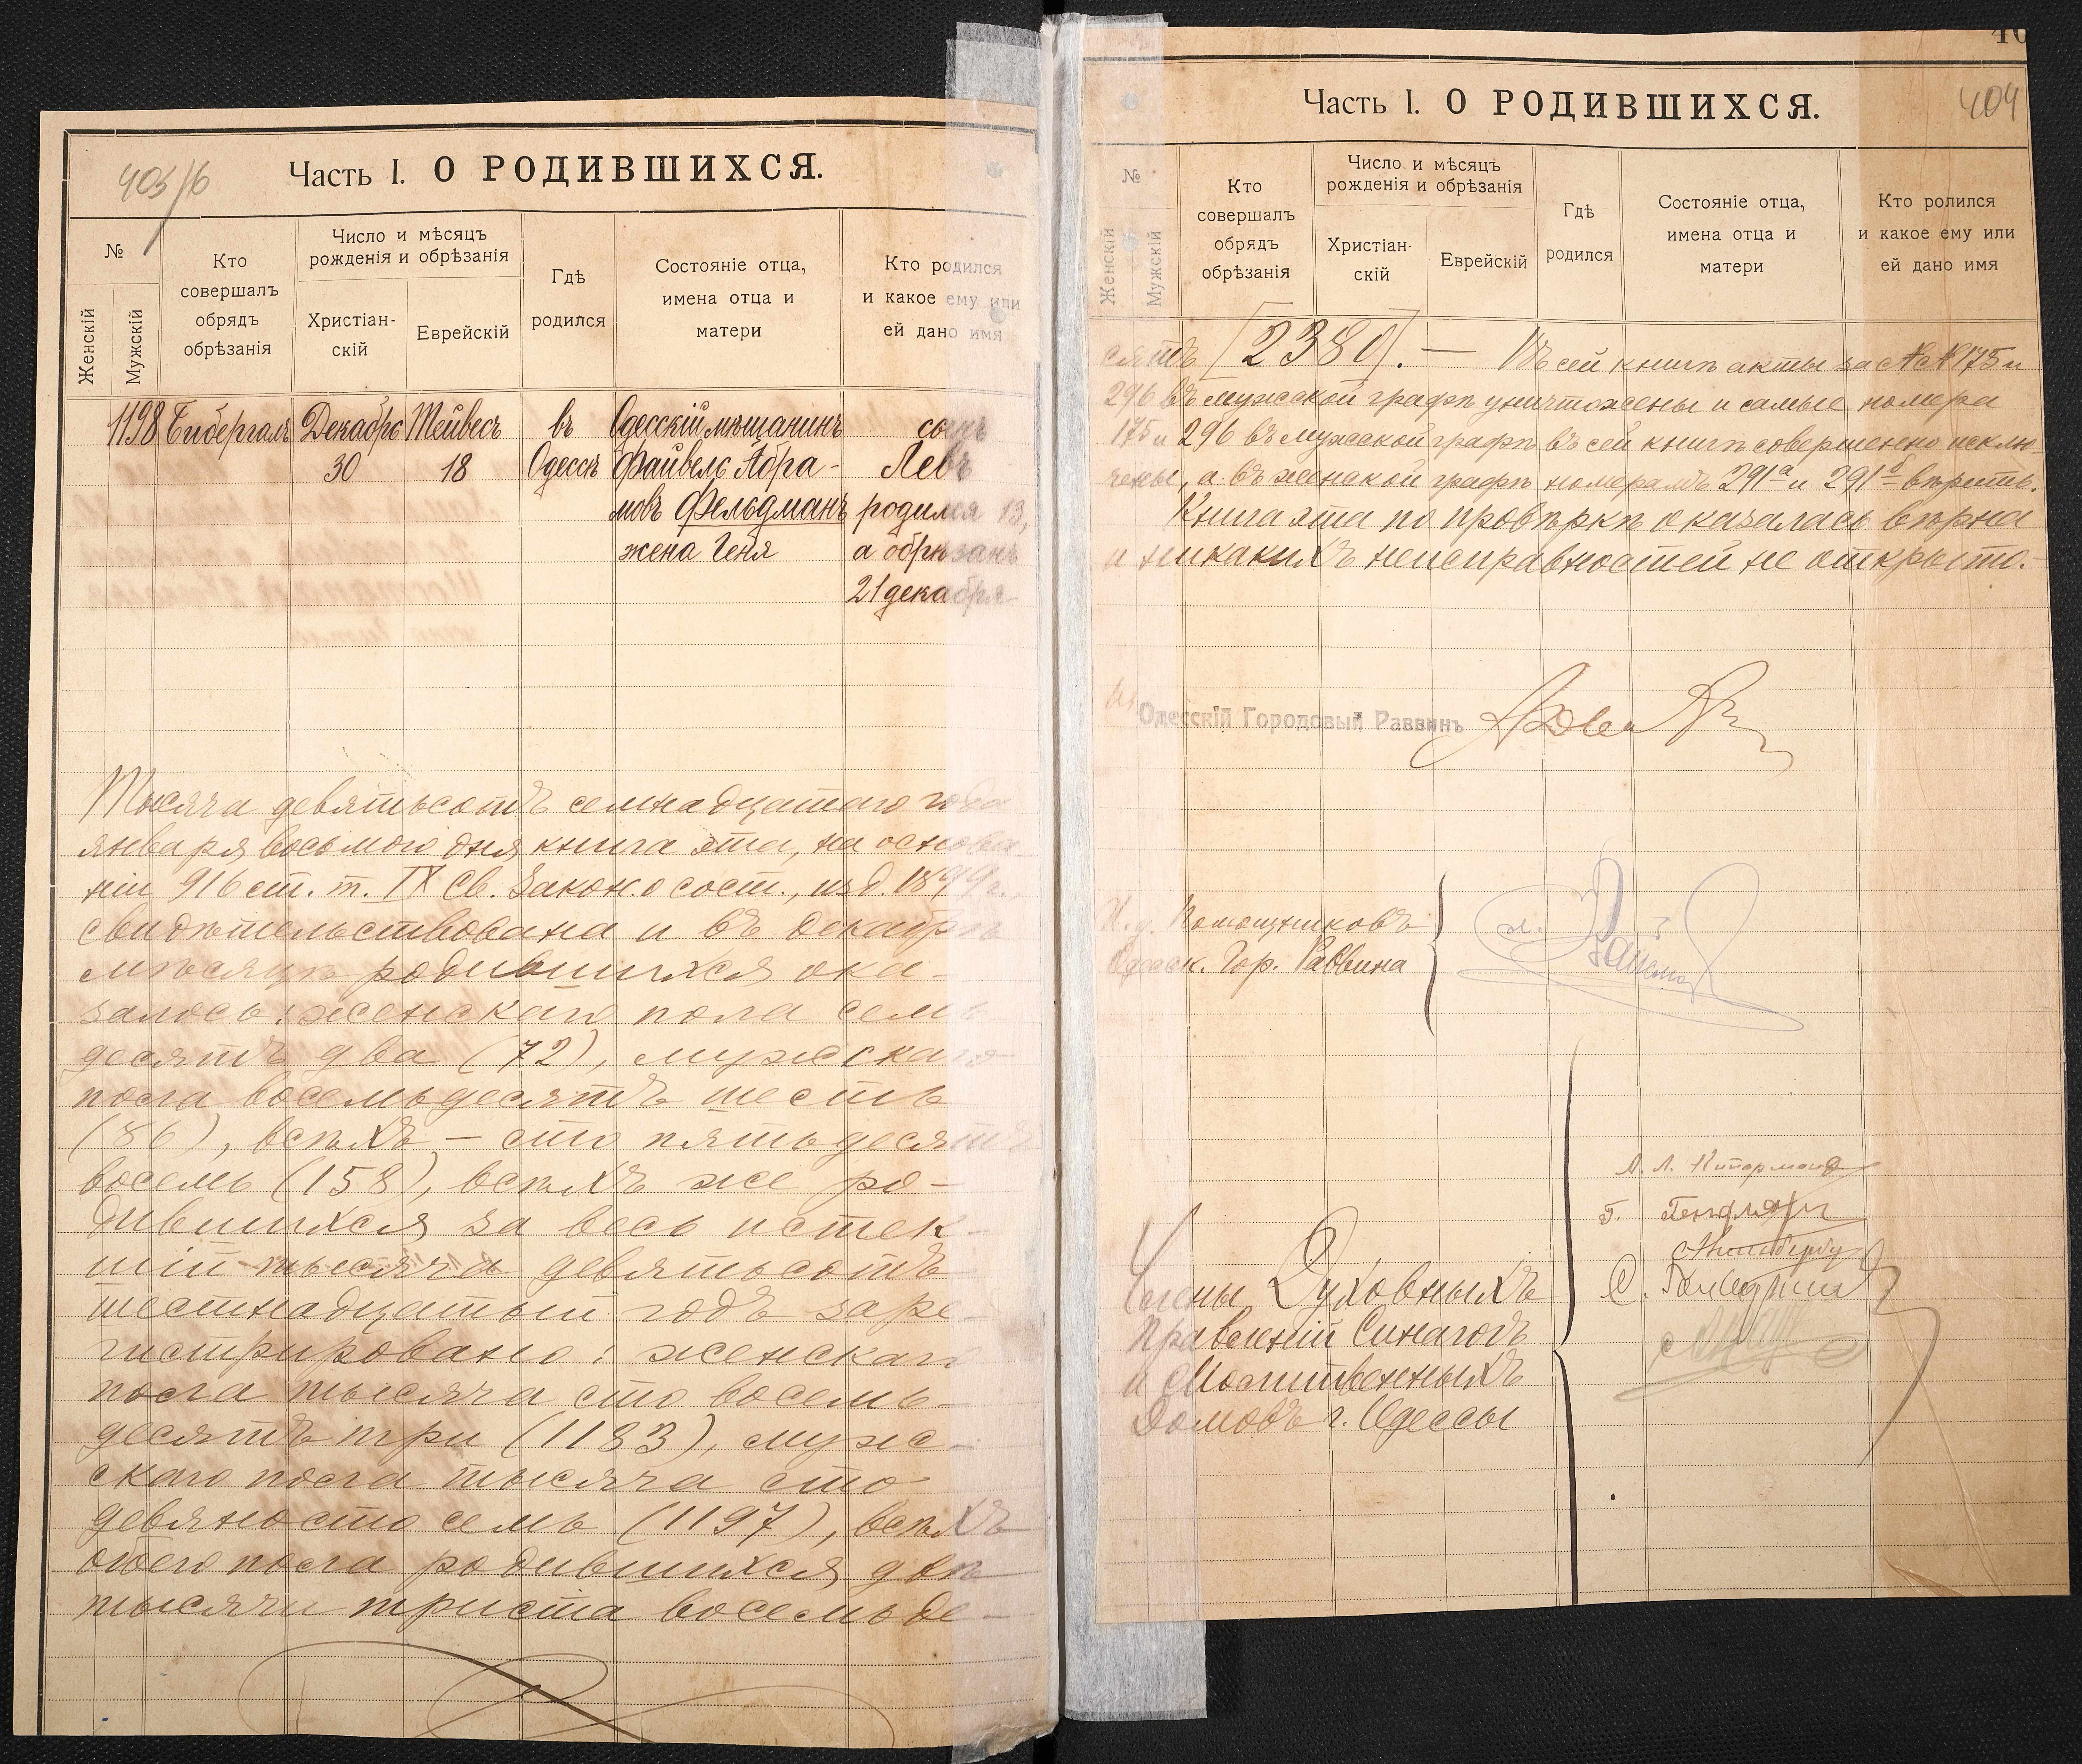 403/б
Часть I. О РОДИВШИХСЯ.
№
Женскій
Мужскій
Кто совершалъ обрядъ обрѣзанія
Число и мѣсяцъ рожденія и обрѣзанія
Христіан-
скій
Еврейскій
Гдѣ родился
Состояніе отца, имена отца и матери
Кто родился и какое ему или ей дано имя
1198 Бибергалъ Декабрь Тейвесъ въ Одесскій мѣщанинъ сынъ
30 18 Одессѣ Файвель Абра- Левъ
мовъ Фельдманъ родился 13,
жена Геня а обрѣзанъ
21 декабря
Тысяча девятьсотъ семнадцатаго года
января восьмого дня книга эта, на основа-
ніи 916 ст. т. IX Св. Закон. о сост., изд. 1899 г.,
свидѣтельствована и въ декабрѣ
мѣсяцѣ родившихся ока-
залось: женскаго пола семь-
десятъ два (72), мужскаго
пола восемьдесятъ шесть
(86), всѣхъ — сто пятьдесятъ
восемь (158), всѣхъ же ро-
дившихся за весь истек-
шій тысяча девятьсотъ
шестнадцатый годъ заре-
гистрировано: женскаго
пола тысяча сто восемь-
десятъ три (1183), муж-
ского пола тысяча сто
девяносто семь (1197), всѣхъ
обоего пола родившихся двѣ
тысячи триста восемьде-
404
Часть I. О РОДИВШИХСЯ.
№
Женскій
Мужскій
Кто
совершалъ
обрядъ
обрѣзанія
Число и мѣсяцъ
рожденія и обрѣзанія
Христіан-
скій
Еврейскій
Гдѣ
родился
Состояніе отца,
имена отца и
матери
Кто ролился
и какое ему или
ей дано имя
сятъ [2380]. — Въ сей книгѣ акты за №№ 175 и
296 въ мужской графѣ уничтожены и самые номера
175 и 296 въ мужской графѣ въ сей книгѣ совершенно исклю-
чены, а въ женской графѣ номерамъ 291а и 291б вѣрить.
Книга эта по провѣркѣ оказалась вѣрна
и никакихъ неисправностей не открыто.
Одесскій Городовый Раввинъ
И. д. Помощниковъ
Одесск. Гор. Раввина
Члены Духовныхъ
Правленій Синагогъ
и Молитвенныхъ
Домовъ г. Одессы